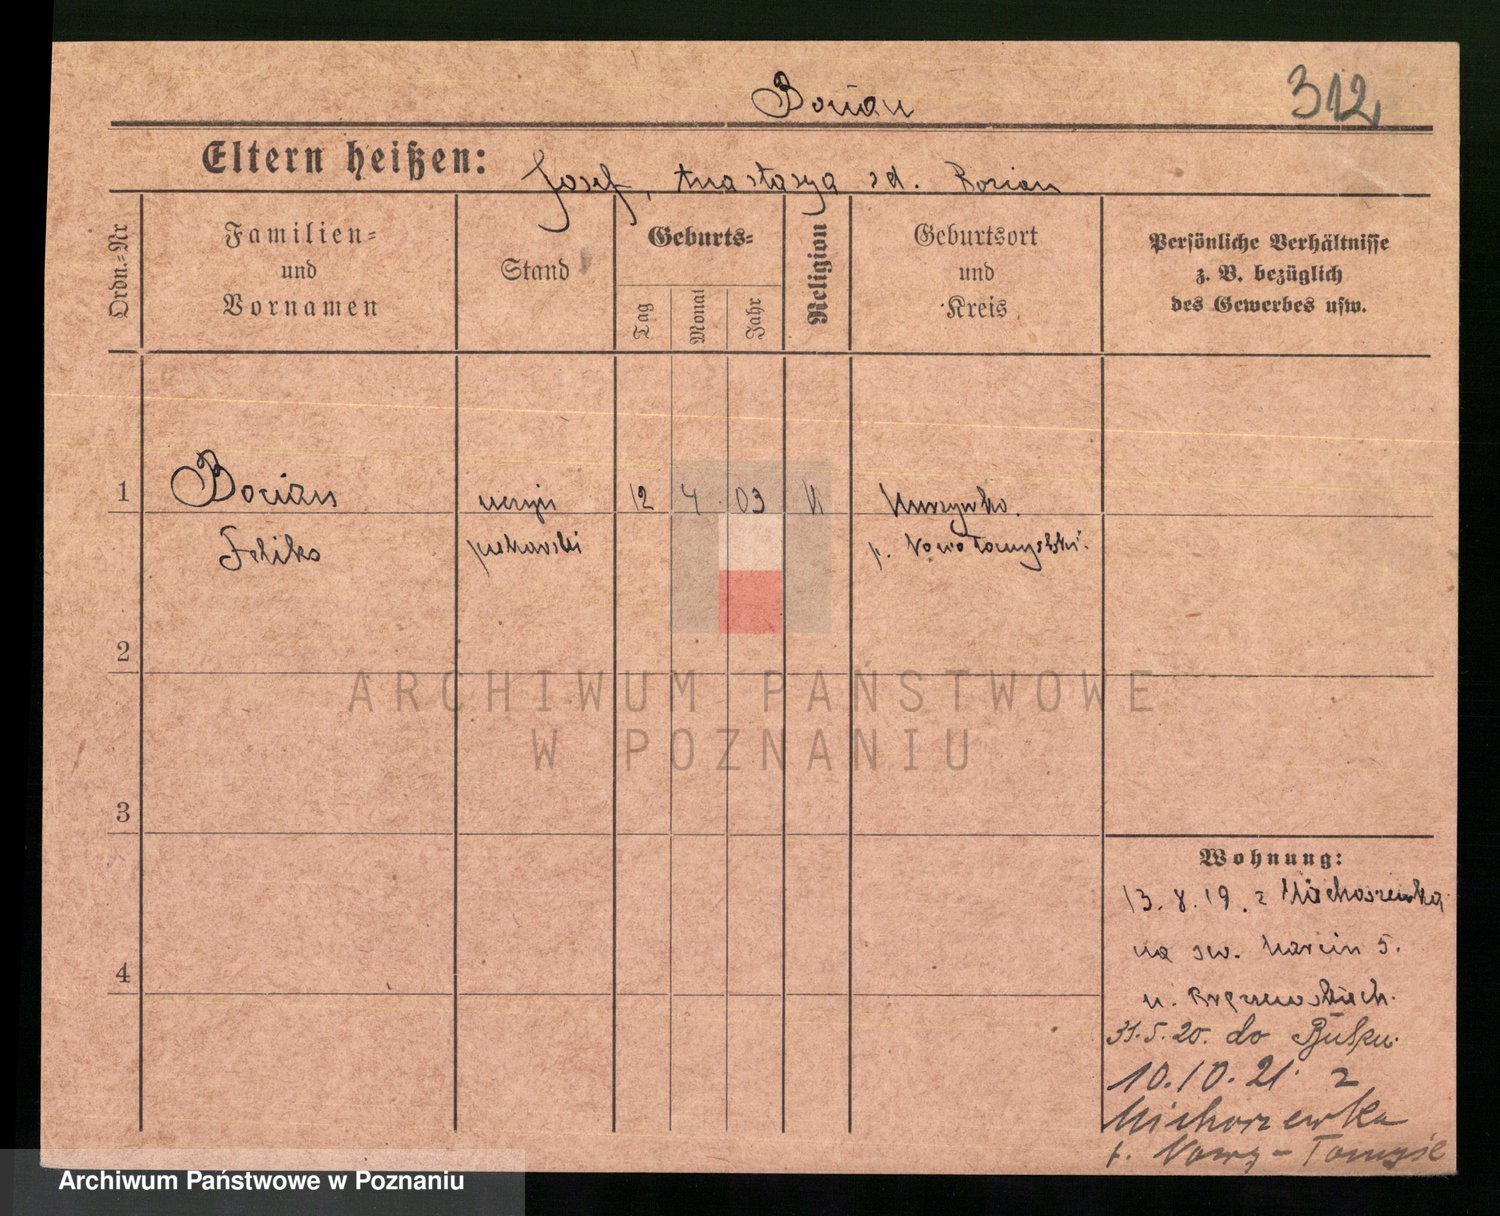 Borian
312
Eltern heißen: Josef, Anastazya zd. Borian
Ordn.=Nr
Familien=
und
Vornamen
Stand
Geburts=
Tag
Monat
Jahr
Religion
Geburtsort
und
Kreis
Persönliche Verhältnisse
z. B. bezüglich
des Gewerbes usw.
1
Borian
Feliks
uczeń
piekarski
12
4
03
p. Nowo Tomyslski.
2
3
4
Wohnung:
13. 8. 19. z Michorzewka
na św. Marcin 5.
u.
31.5.20. do
10.10.21. z
Michorzewka
p. Nowy-Tomyśl
ARCHIWUM PAŃSTWOWE
W POZNANIU
Archiwum Państwowe w Poznaniu